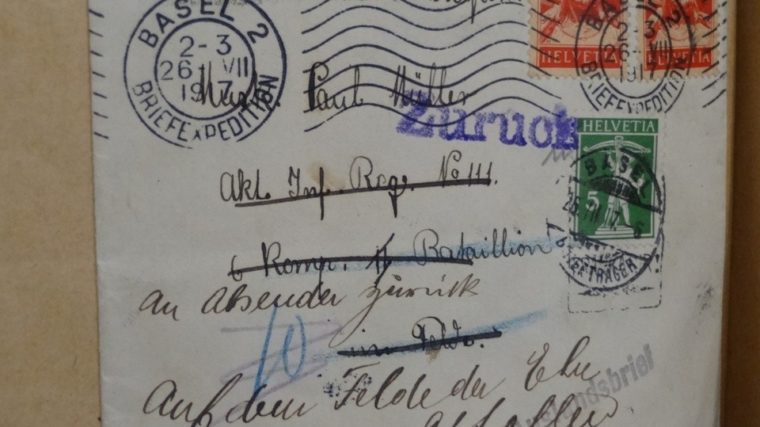 BASEL 2
2-3
26. VII
1917
BRIEFEXPEDITION
HELVETIA HELVETIA
BASEL 2
2-3
26. VII
1917
BRIEFEXPEDITION
Musk. Paul Müller
Zurück
HELVETIA
5
BASEL
BRIEFTRÄGER
Akt. Inf. Reg. No 111.
6 Komp. II Bataillon
an Absender zurück
im Felde.
10
Auf dem Felde der Ehre
gefallen
Auslandsbrief